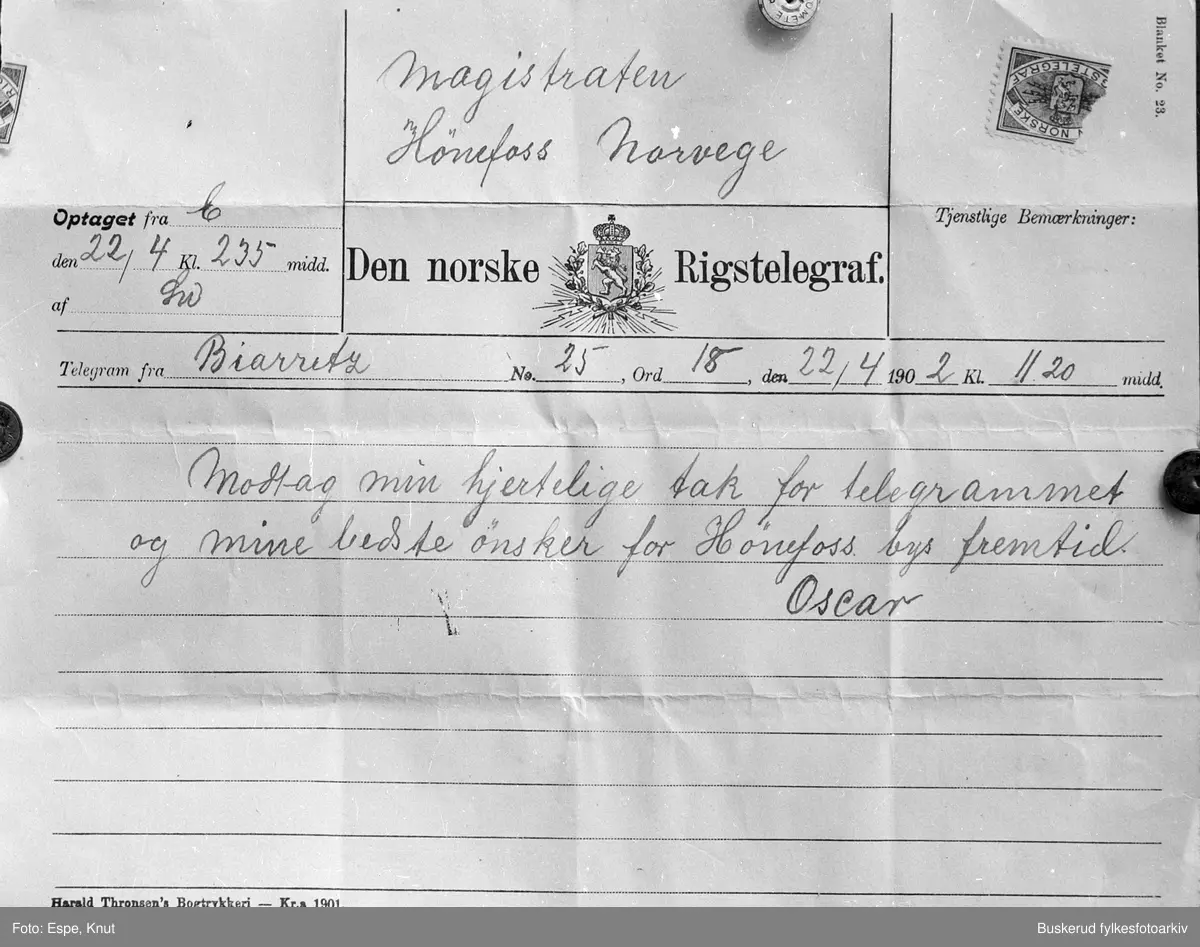 Blanket No. 23.
NORSKE
Magistraten
Hönefoss Norvege
Optaget fra C
den 22/4 Kl. 235 midd.
af
Tjenstlige Bemærkninger:
Den norske Rigstelegraf.
Telegram fra Biarretz No. 25, Ord 18, den 22/4 1902 Kl. 11 20 midd.
Modtag min hjertelige tak for telegrammet
og mine bedste önsker for Hönefoss bys fremtid.
Oscar
Harald Thronsen's Bogtrykkeri — Kr.a 1901
Foto: Espe, Knut
Buskerud fylkesfotoarkiv